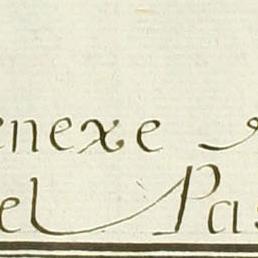 enexe
el Pas